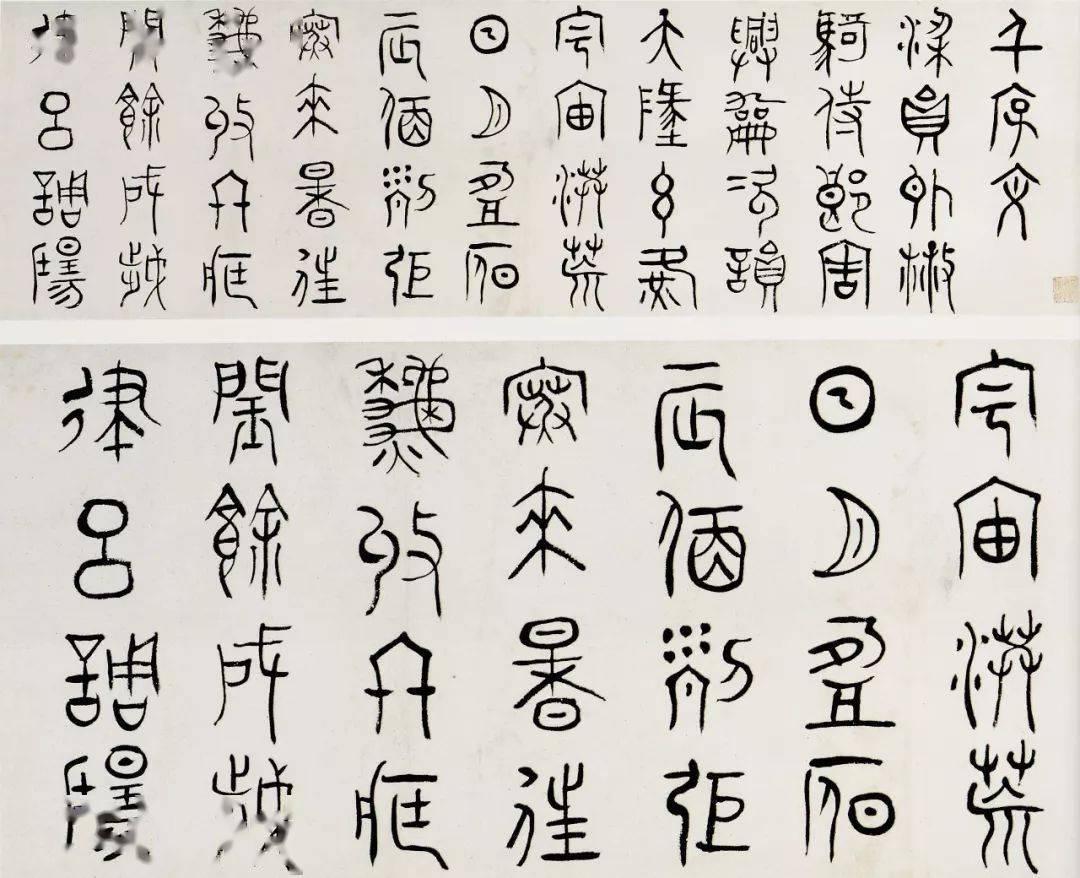 千字文
梁員外散
騎侍郎周
興嗣次韻
天地玄黃
宇宙洪荒
日月盈昃
辰宿列張
寒來暑往
秋收冬藏
閏餘成歲
律呂調陽
宇宙洪荒
日月盈昃
辰宿列張
寒來暑往
秋收冬藏
閏餘成歲
律呂調陽